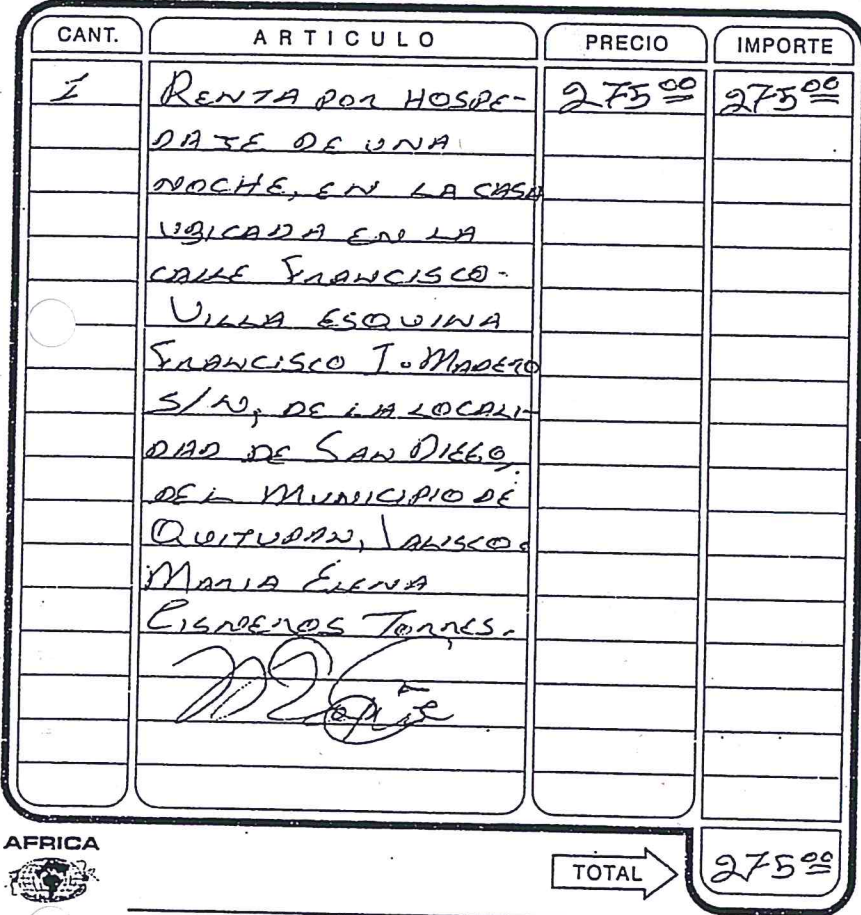 CANT. ARTICULO PRECIO IMPORTE
1 RENTA POR HOSPE- 275.00 275.00
DAJE DE UNA
NOCHE, EN LA CASA
UBICADA EN LA
CALLE FRANCISCO-
VILLA ESQUINA
FRANCISCO I. MADERO
S/N, DE LA LOCALI-
DAD DE SAN DIEGO,
DEL MUNICIPIO DE
QUITUPAN, JALISCO.
MARIA ELENA
CISNEROS TORRES.
AFRICA
TOTAL 275.00